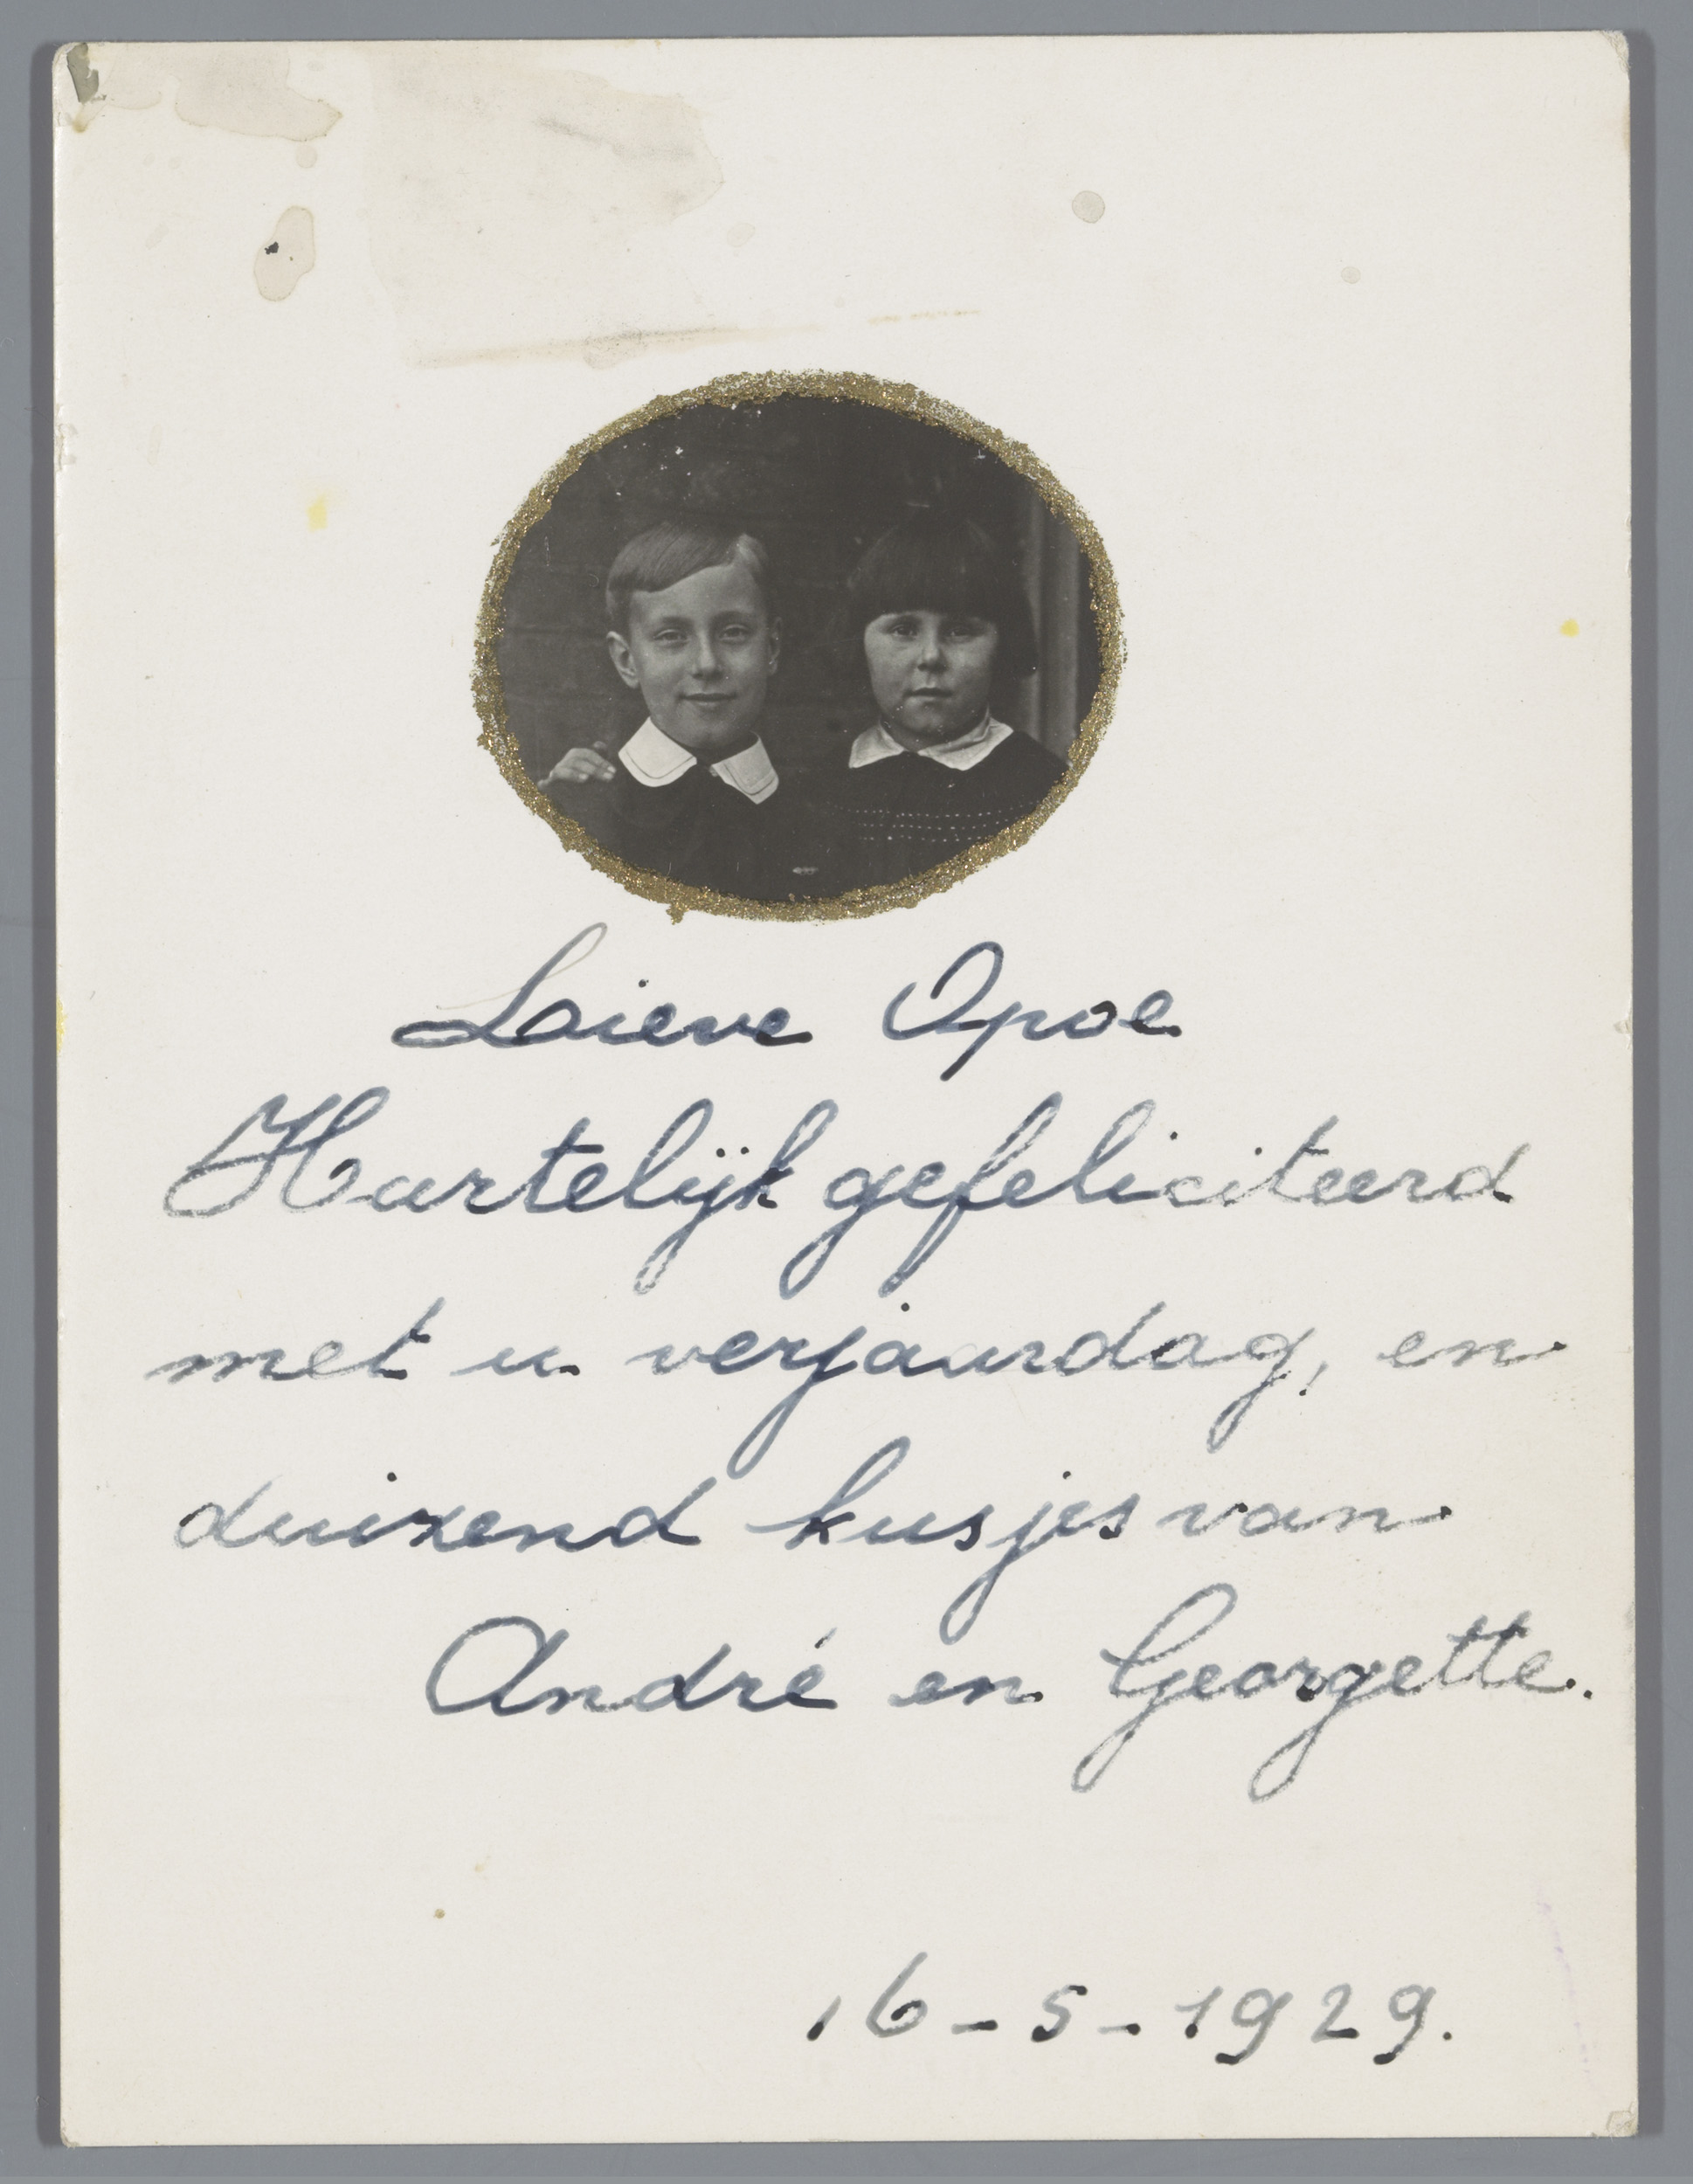 Laieve Opoe
Hartelijk gefeliciteerd
met u verjaardag, en
duizend kusjes van
André en Georgette.
16-5-1929.